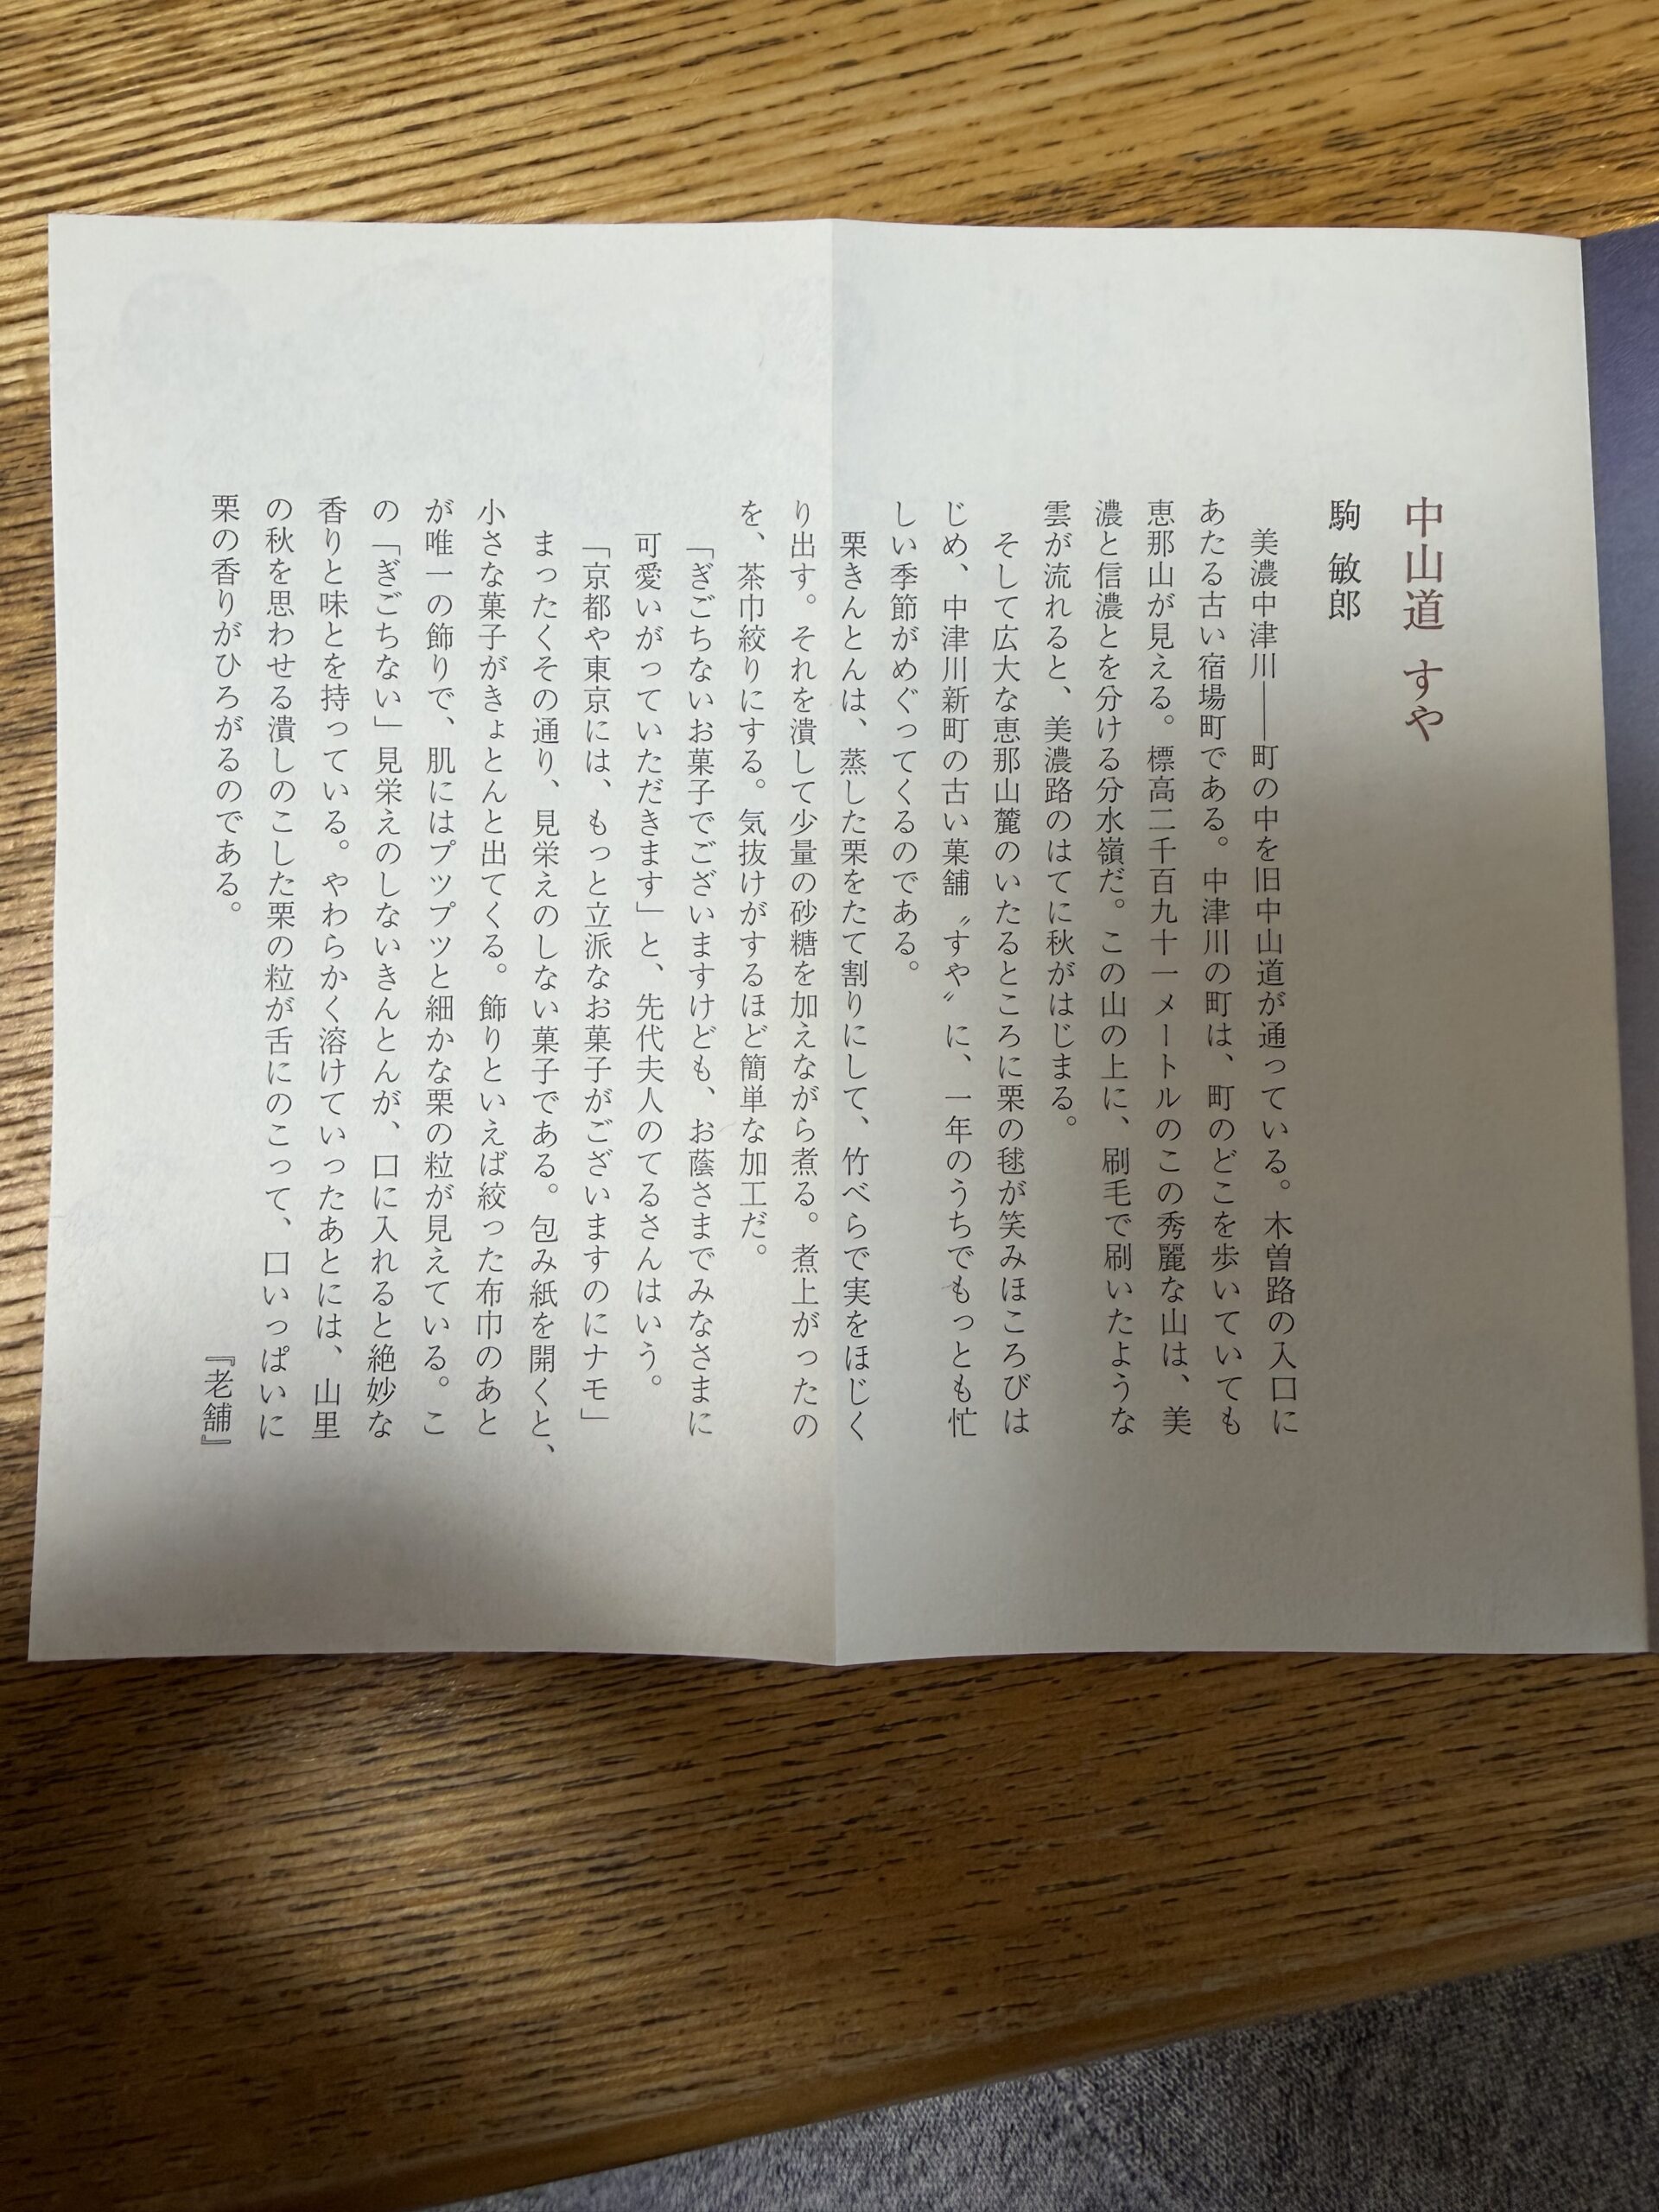 中山道 すや
駒 敏郎
美濃中津川――町の中を旧中山道が通っている。木曽路の入口に
あたる古い宿場町である。中津川の町は、町のどこを歩いていても
恵那山が見える。標高二千百九十一メートルのこの秀麗な山は、美
濃と信濃とを分ける分水嶺だ。この山の上に、刷毛で刷いたような
雲が流れると、美濃路のはてに秋がはじまる。
そして広大な恵那山麓のいたるところに栗の毬が笑みほころびは
じめ、中津川新町の古い菓舗〝すや〟に、一年のうちでもっとも忙
しい季節がめぐってくるのである。
栗きんとんは、蒸した栗をたて割りにして、竹べらで実をほじく
り出す。それを潰して少量の砂糖を加えながら煮る。煮上がったの
を、茶巾絞りにする。気抜けがするほど簡単な加工だ。
「ぎごちないお菓子でございますけども、お蔭さまでみなさまに
可愛いがっていただきます」と、先代夫人のてるさんはいう。
「京都や東京には、もっと立派なお菓子がございますのにナモ」
まったくその通り、見栄えのしない菓子である。包み紙を開くと、
小さな菓子がきょとんと出てくる。飾りといえば絞った布巾のあと
が唯一の飾りで、肌にはプツプツと細かな栗の粒が見えている。こ
の「ぎごちない」見栄えのしないきんとんが、口に入れると絶妙な
香りと味とを持っている。やわらかく溶けていったあとには、山里
の秋を思わせる潰しのこした栗の粒が舌にのこって、口いっぱいに
栗の香りがひろがるのである。
『老舗』